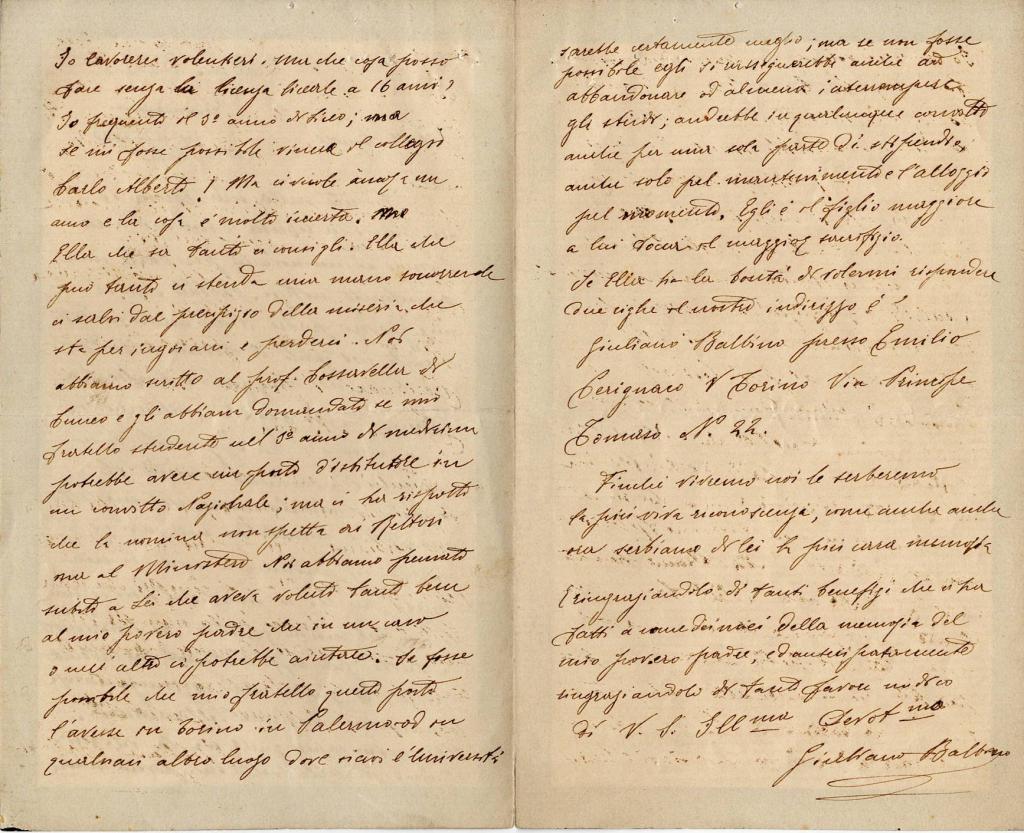 Io lavorerei volentieri. Ma che cosa posso
fare senza la licenza liceale a 16 anni?
Io frequento il 3º anno di Liceo; ma
se mi fosse possibile vincere il collegio
Carlo Alberto! Ma ci vuole ancora un
anno e la cosa è molto incerta.
Ella che sa tanto ci consigli. Ella che
può tanto ci stenda una mano
ci salvi dal precipizio della miseria che
sta per ingoiarci e perderci. Noi
abbiamo scritto al prof. Cossavella di
Cuneo e gli abbiam domandato se mio
fratello studente nel 3º anno di medicina
potrebbe avere un posto d'istitutore in
un convitto Nazionale; ma ci ha risposto
che la nomina non spetta ai Rettori
ma al Ministero Noi abbiamo pensato
subito a Lei che aveva voluto tanto bene
al mio povero padre che in un caso
o nell'altro ci potrebbe aiutare. Se fosse
possibile che mio fratello questo posto
l'avesse in Torino in Palermo od in
qualsiasi altro luogo dove siavi l'università
sarebbe certamente meglio; ma se non fosse
possibile egli si rassegnerebbe anche ad
abbandonare od almeno
gli studi; andrebbe in qualunque convitto
anche per una sola parte di stipendio,
anche solo pel mantenimento e l'alloggio
pel momento. Egli è il figlio maggiore
a lui tocca il maggior sacrifizio.
Se Ella ha la bontà di volermi rispondere
due righe il nostro indirizzo è:
Giuliano Balbino presso Emilio
Cerignaco Torino Via Principe
Tomaso N. 22.
Finché vivremo noi le serberemo
la più viva riconoscenza, come anche
ora serbiamo di lei la più cara memoria
E ringraziandolo di tanti benefizi che ci ha
fatti della memoria del
mio povero padre, ed anticipatamente
ringraziandolo di tanto favore
di V. S. Ill ma Devot mo
Giuliano Balbino